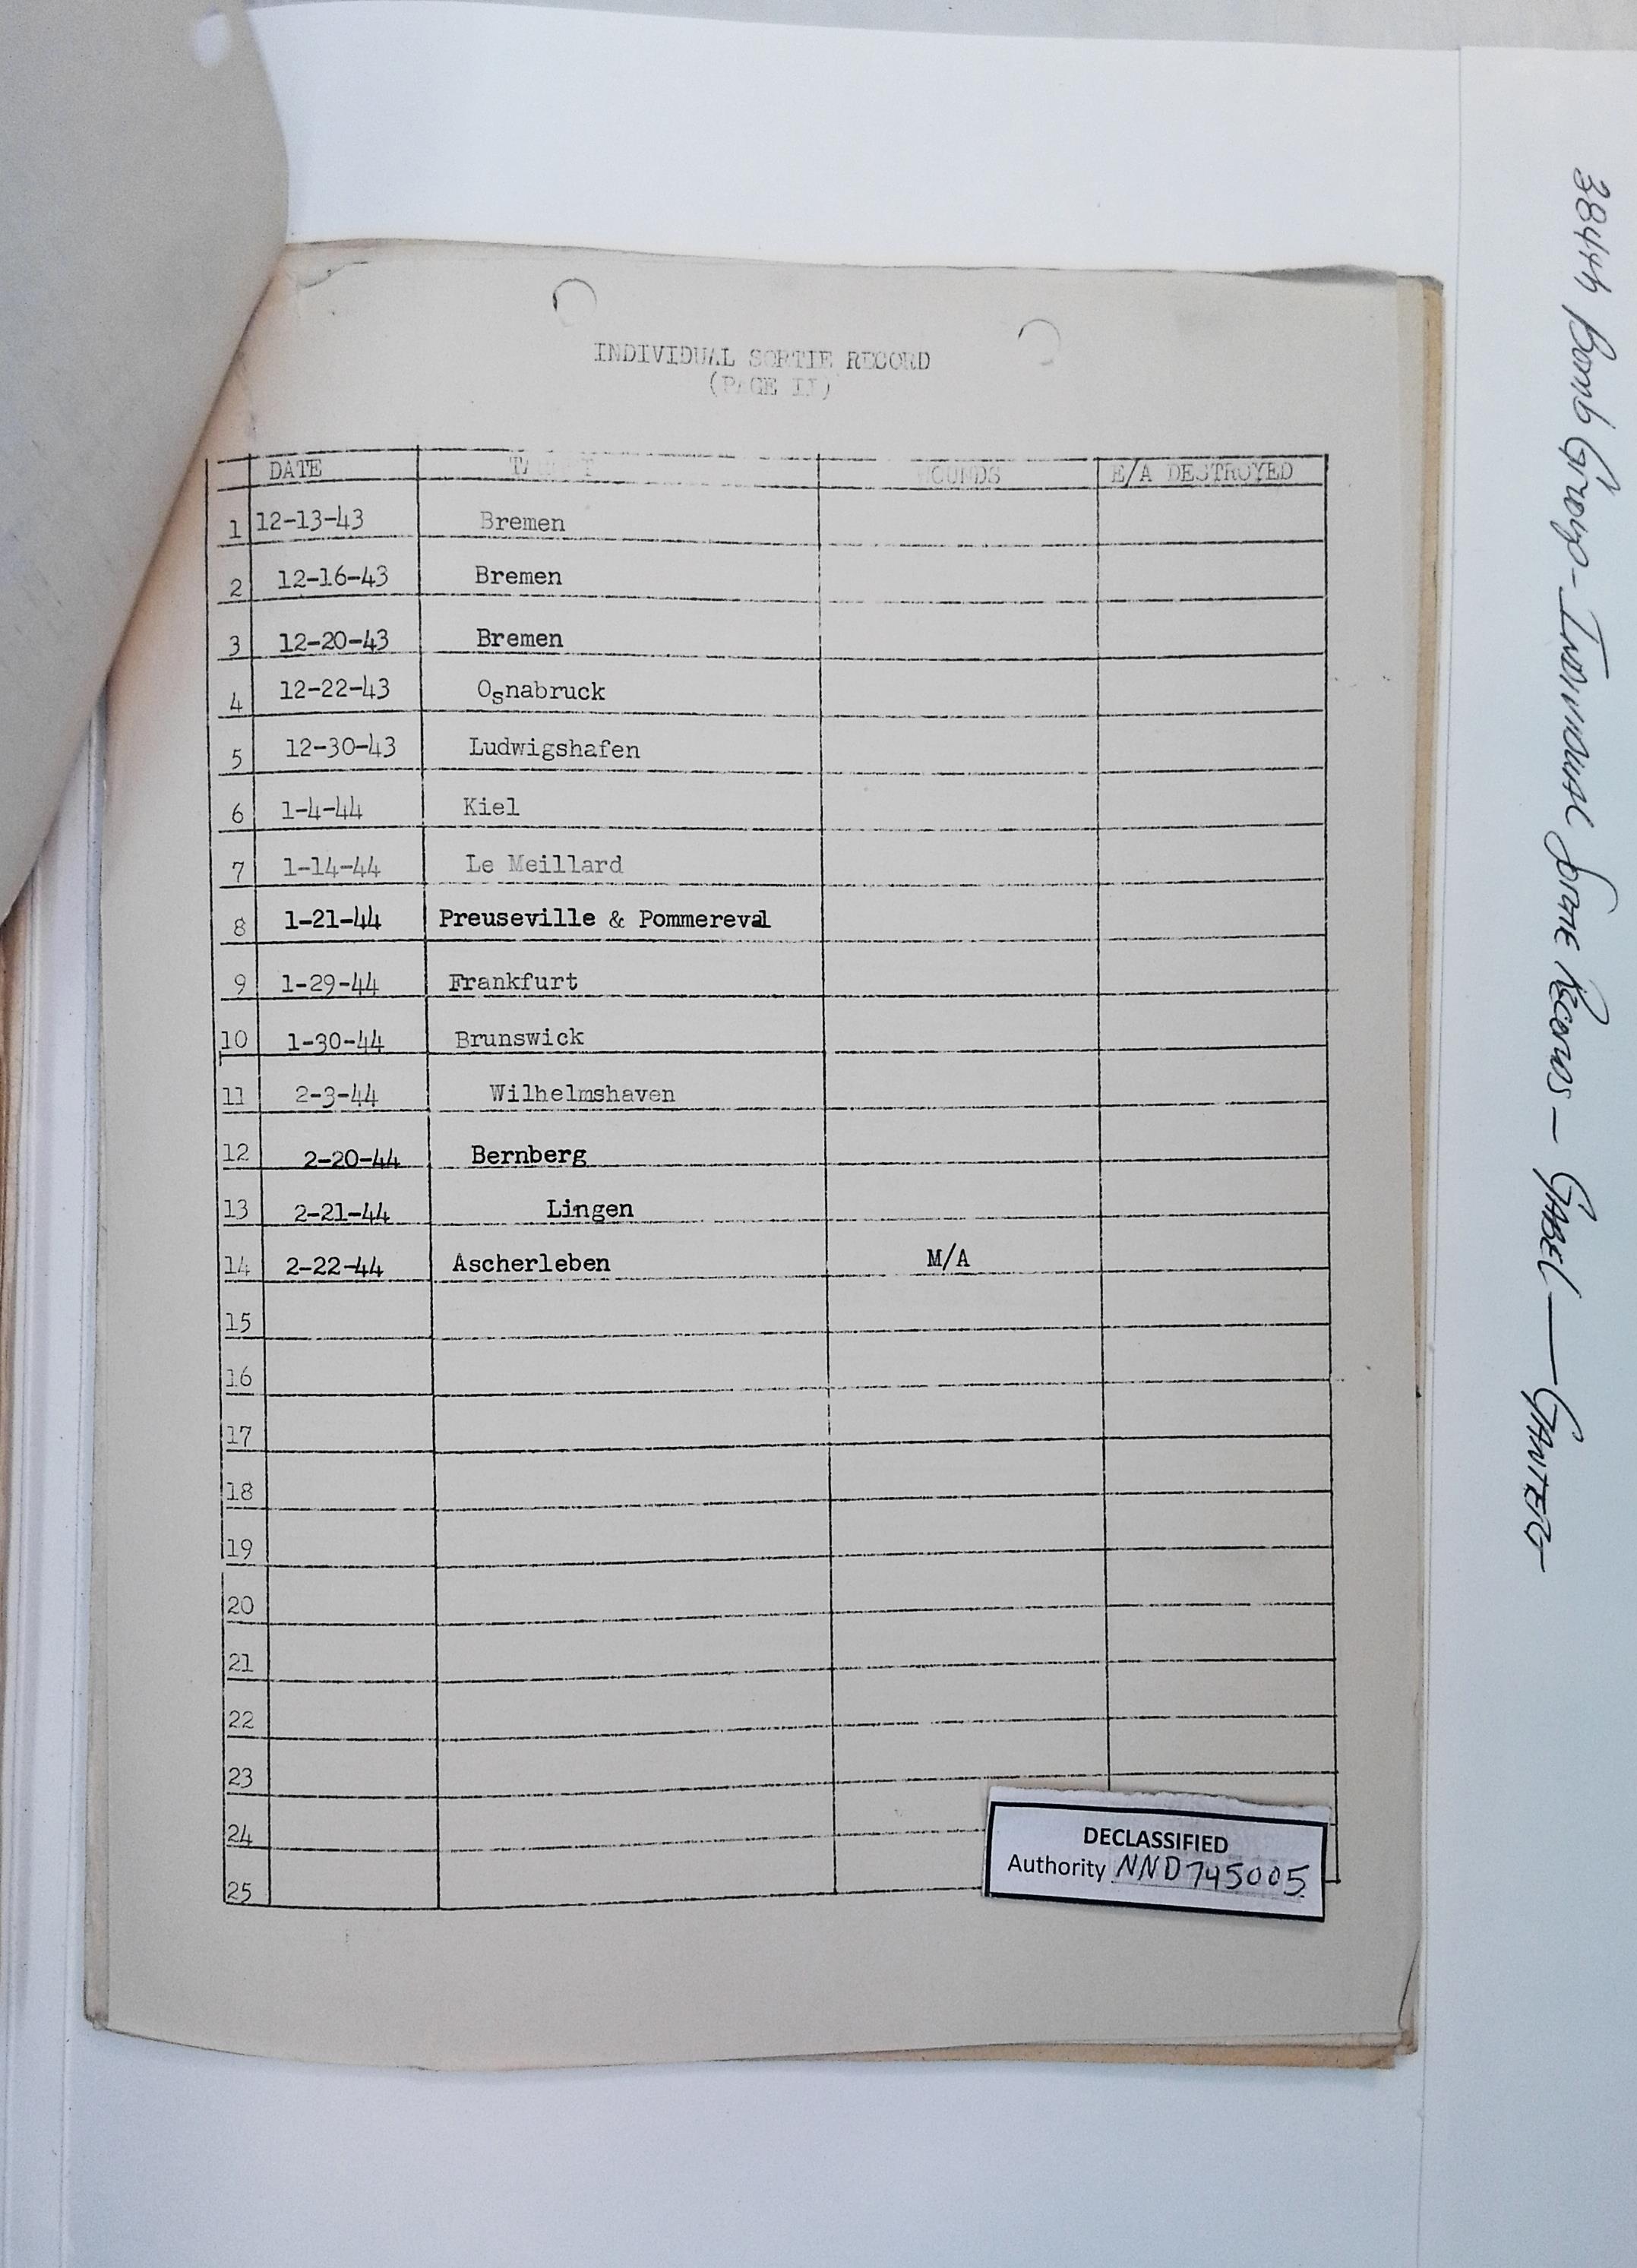 INDIVIDUAL SORTIE RECORD
(PAGE II)
DATE WOUNDS E/A DESTROYED
1 12-13-43 Bremen
2 12-16-43 Bremen
3 12-20-43 Bremen
4 12-22-43 Osnabruck
5 12-30-43 Ludwigshafen
6 1-4-44 Kiel
7 1-14-44 Le Meillard
8 1-21-44 Preuseville & Pommereval
9 1-29-44 Frankfurt
10 1-30-44 Brunswick
11 2-3-44 Wilhelmshaven
12 2-20-44 Bernberg
13 2-21-44 Lingen
14 2-22-44 Ascherleben M/A
15
16
17
18
19
20
21
22
23
24
25
DECLASSIFIED
Authority NND745005
384th Bomb Group - Individual Sortie Records - GABEL — GANTER